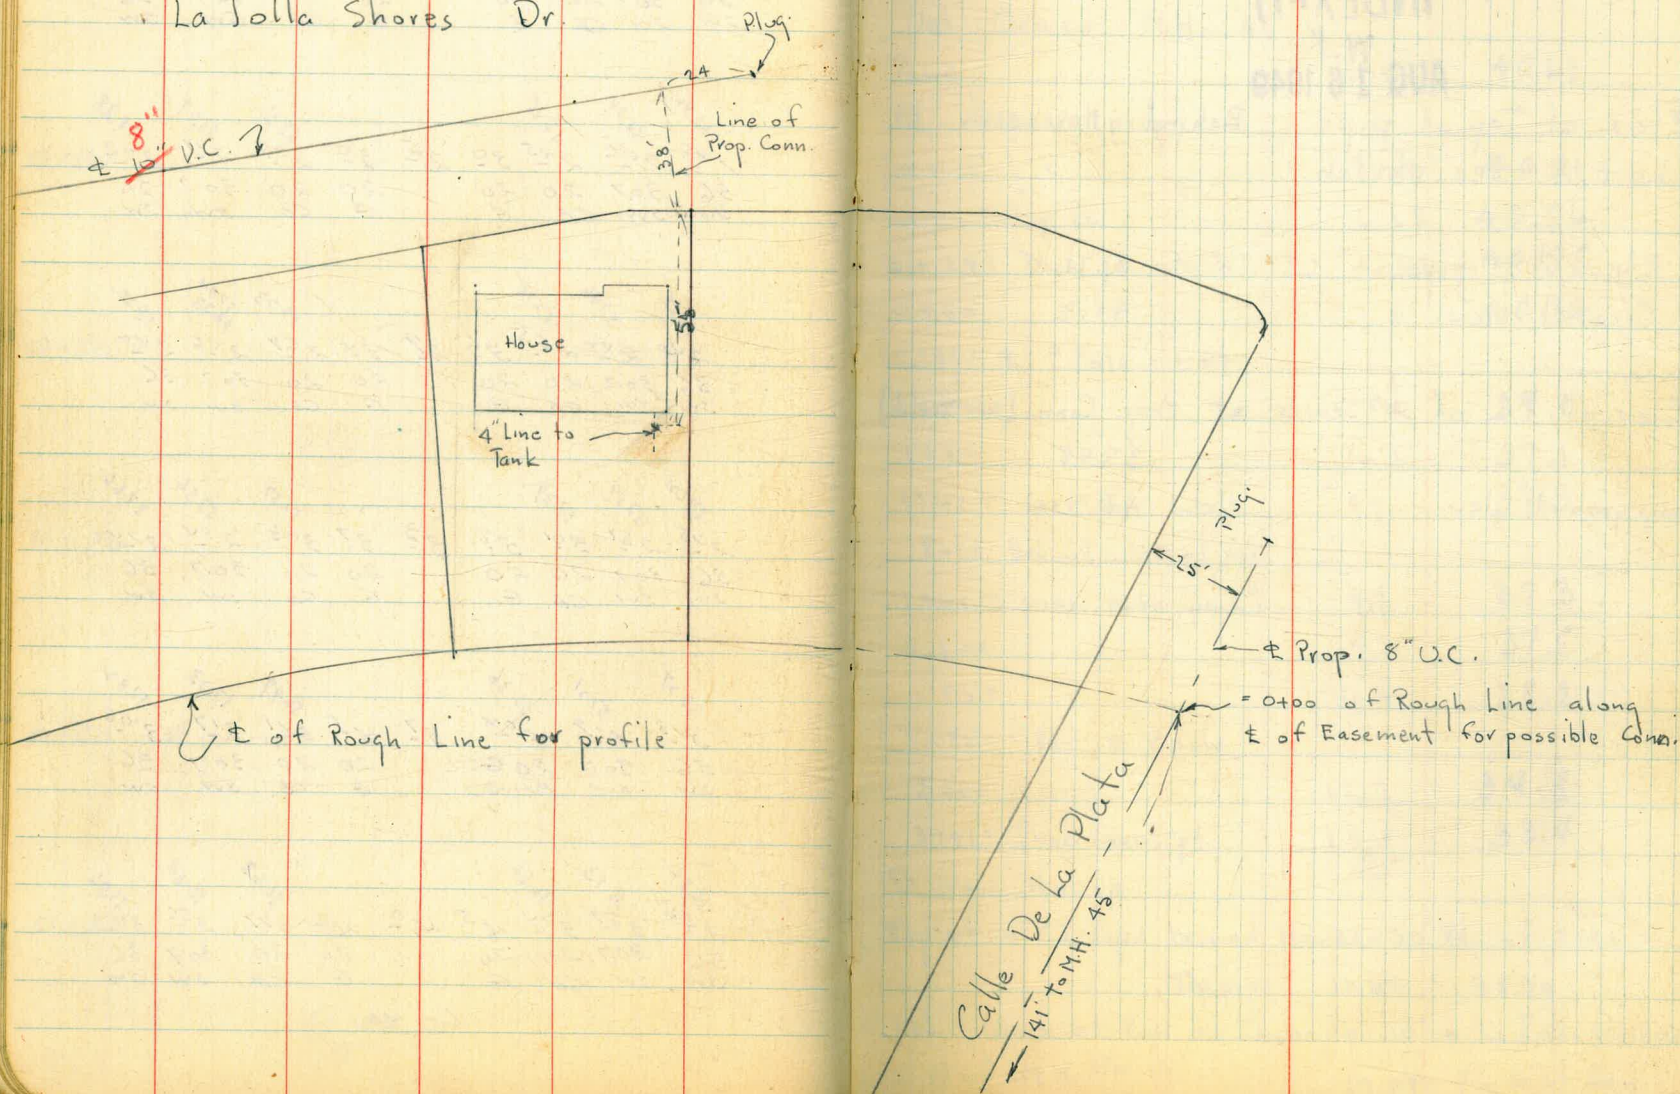 La Jolla Shores Dr.
Plug.
24
38'
Line of
Prop. Conn.
8"
℄ 10" V.C.
House
55'
4" Line to
Tank
℄ of Rough Line for profile
Plug.
25'
℄ Prop. 8" V.C.
= 0+00 of Rough Line along
℄ of Easement for possible Conn.
Calle De La Plata
141' to M.H. 45